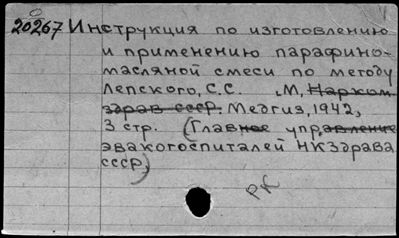 20267 Инструкция по изготовлению
и применению парафино-
масляной смеси по методу
Лепского, С.С. М, Нарком-
здрав СССР. Медгиз, 1942,
3 стр. (Главное управление
эвакогоспиталей НКЗдрава
СССР)
РК